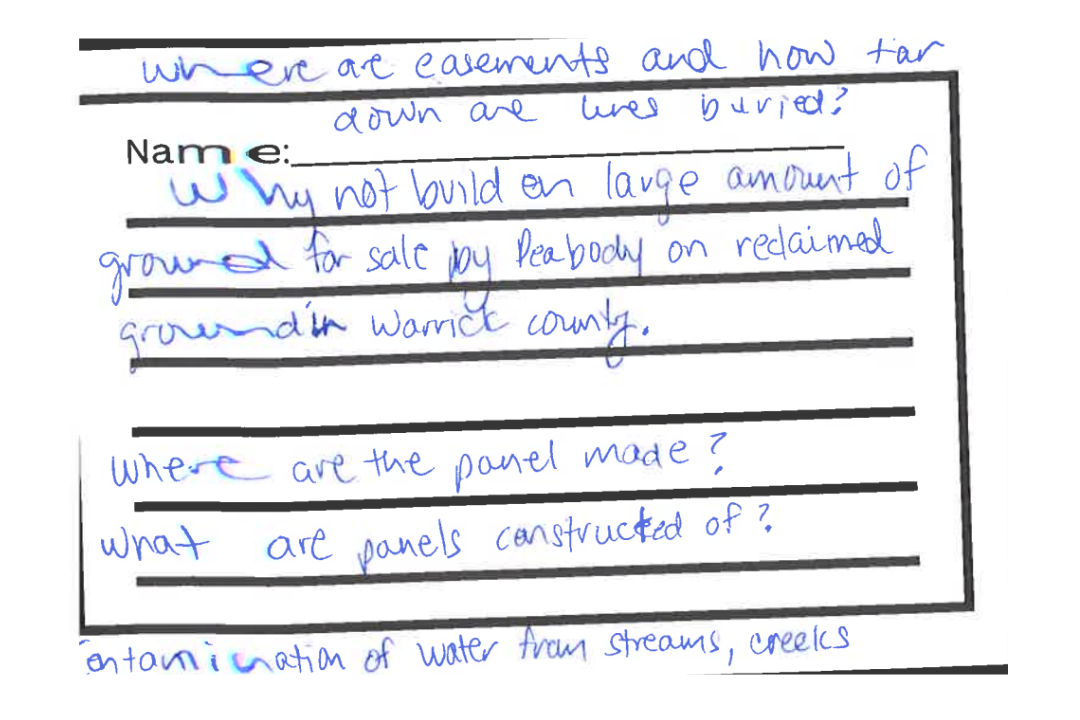 where are easements and how far
down are lines buried?
Name:
Why not build on large amount of
ground for sale by Peabody on reclaimed
ground in Warrick county.
Where are the panel made?
What are panels constructed of?
ontamination of water from streams, creeks